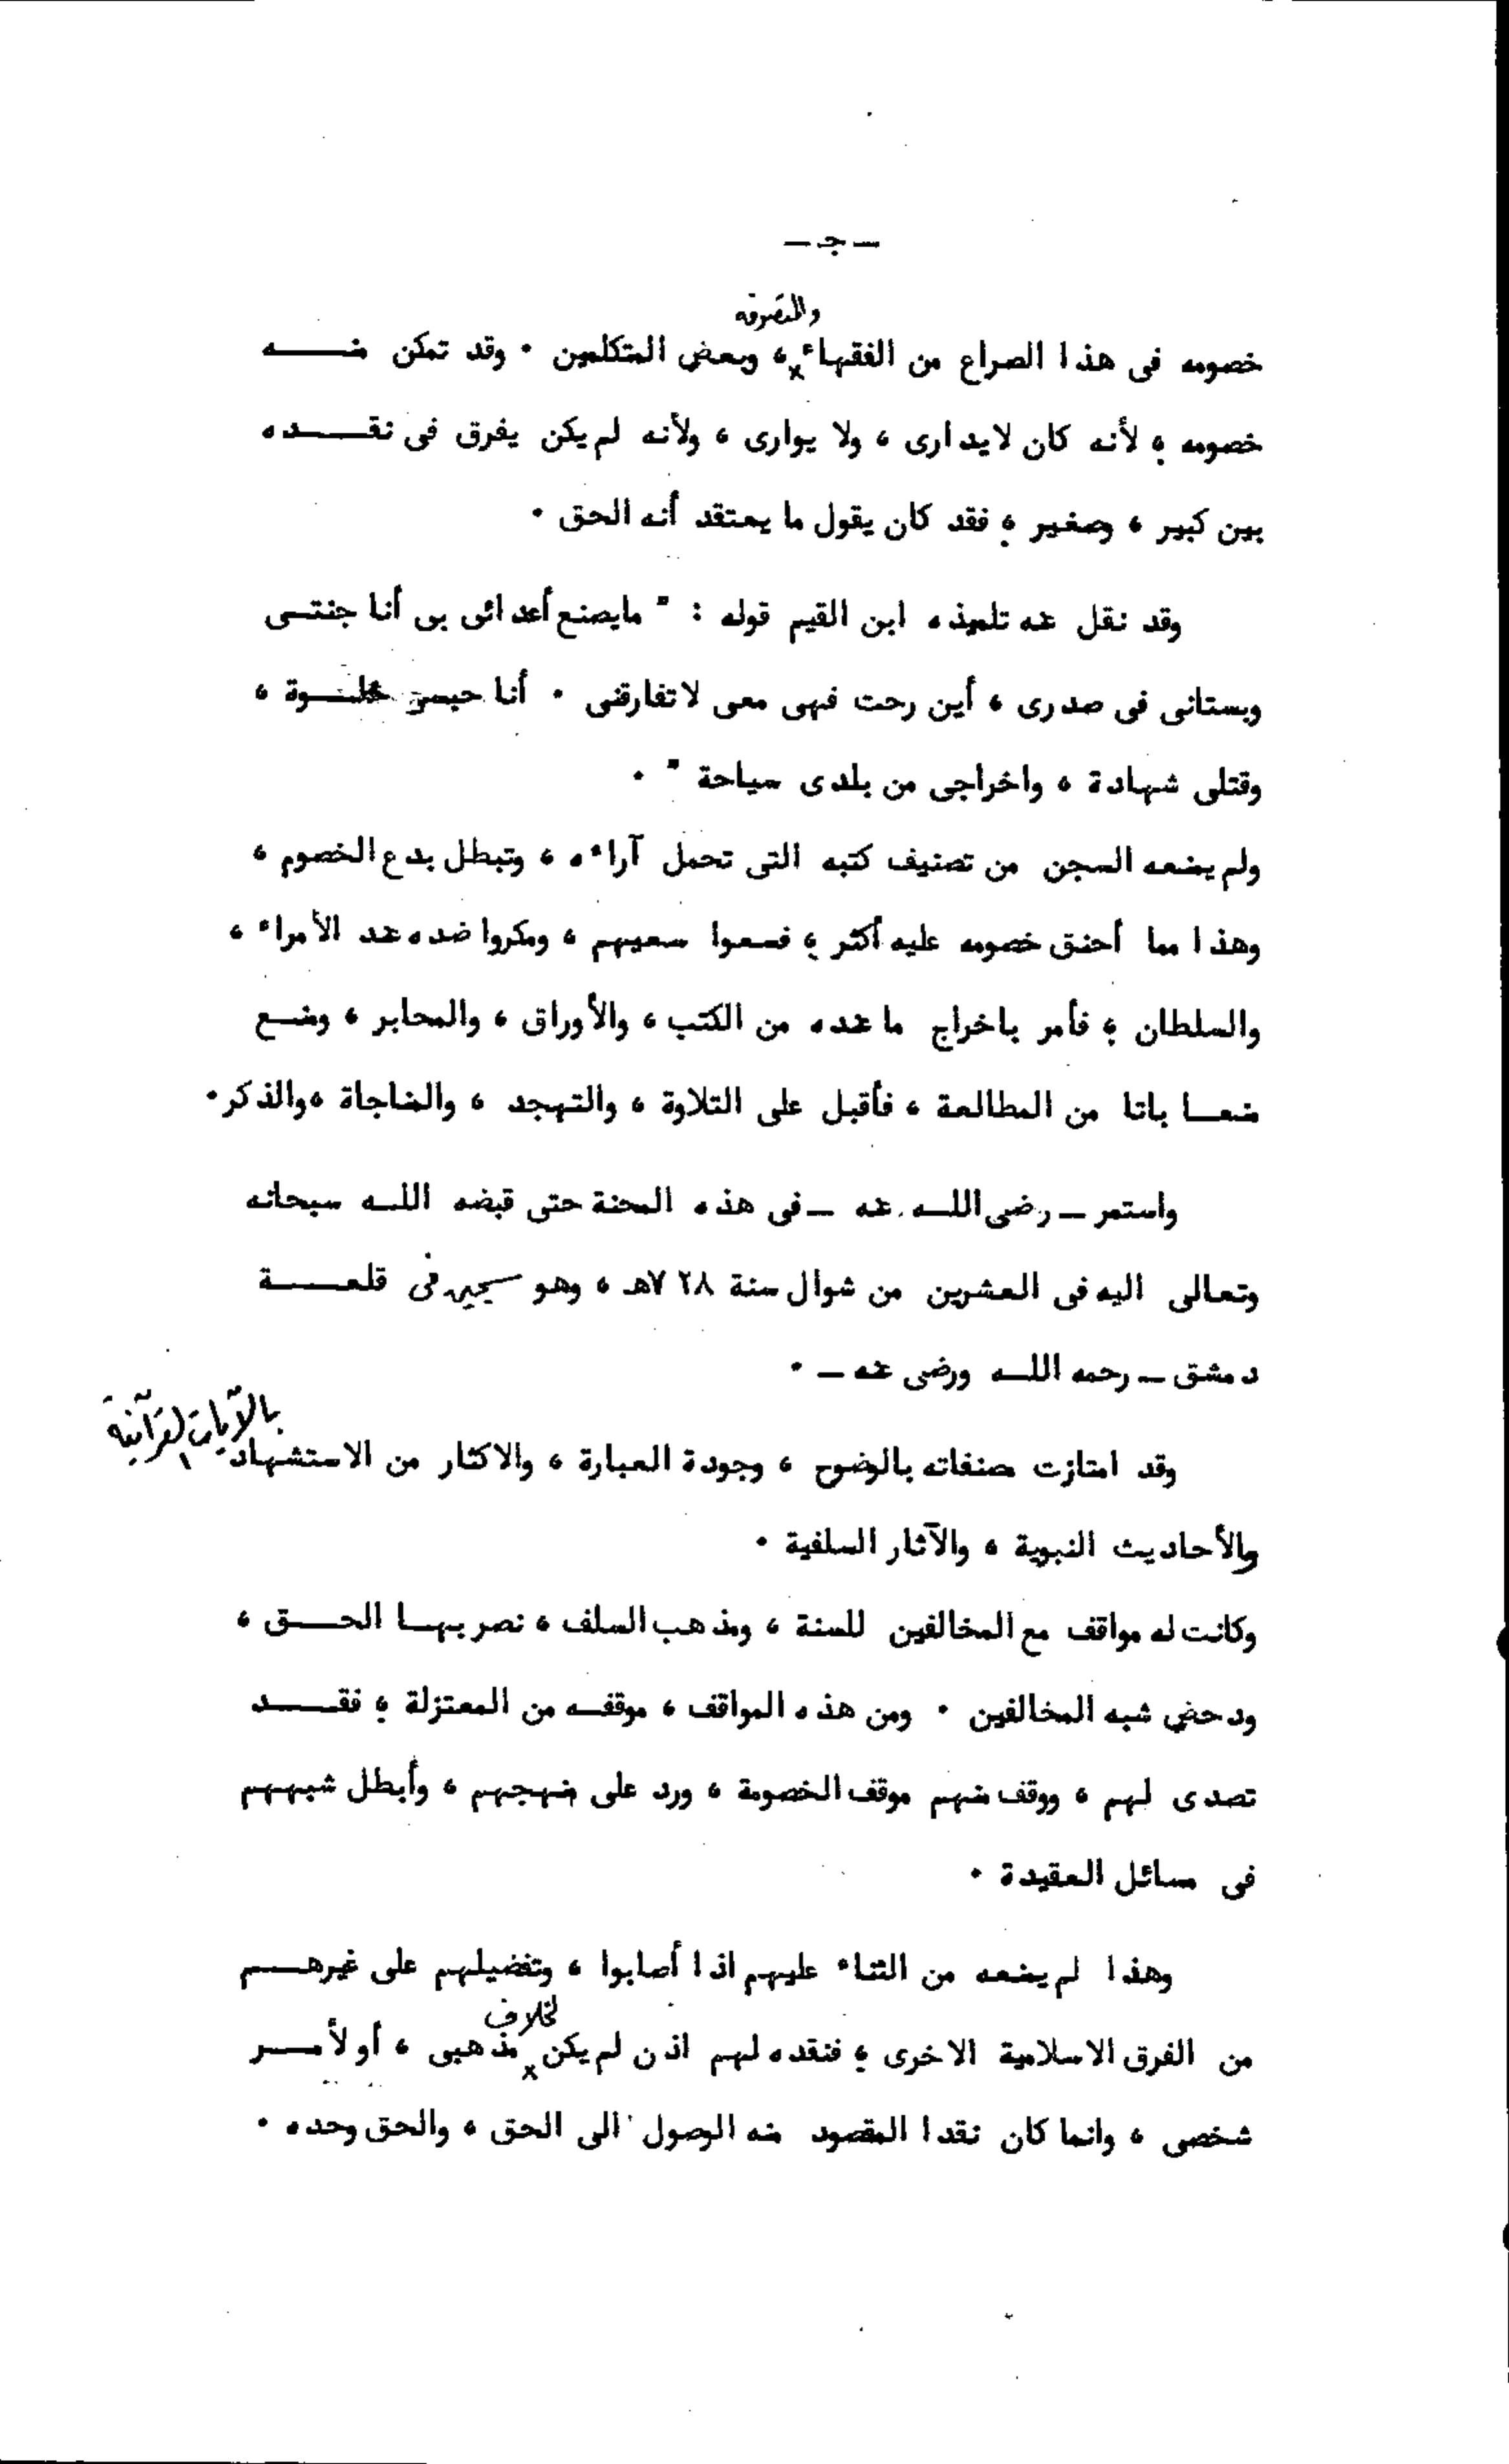 - جـ -
خصومه فى هذا الصراع من الفقهاء والمتصوفه ، وبعض المتكلمين . وقد تمكن منـــــه
خصومه ؛ لأنه كان لايدارى ، ولا يوارى ، ولأنه لم يكن يفرق فى نقـــــده
بين كبير ، وصغير ؛ فقد كان يقول ما يعتقد أنه الحق .
وقد نقل عنه تلميذه ابن القيم قوله : " مايصنع أعدائى بى أنا جنتـــى
وبستانى فى صدرى ، أين رحت فهى معى لاتفارقنى . أنا حبسى خلــــوة ،
وقتلى شهادة ، واخراجى من بلدى سياحة " .
ولم يمنعه السجن من تصنيف كتبه التى تحمل آراءه ، وتبطل بدع الخصوم ،
وهذا مما أحنق خصومه عليه أكثر ؛ فسعوا سعيهم ، ومكروا ضده عند الأمراء ،
والسلطان ؛ فأمر باخراج ما عنده من الكتب ، والأوراق ، والمحابر ، ومنــع
منعــا باتا من المطالعة ، فأقبل على التلاوة ، والتهجد ، والمناجاة ،والذكر.
واستمر ــ رضى اللــه عنه ــ فى هذه المحنة حتى قبضه اللــه سبحانه
وتعالى اليه فى العشرين من شوال سنة ٧٢٨هـ ، وهو سجين فى قلعـــــة
دمشق ــ رحمه اللــه ورضى عنه ــ .
وقد امتازت مصنفاته بالوضوح ، وجودة العبارة ، والاكثار من الاستشهاد بالآيات القرآنية
والأحاديث النبوية ، والآثار السلفية .
وكانت له مواقف مع المخالفين للسنة ، ومذهب السلف ، نصر بهــا الحـــق ،
ودحض شبه المخالفين . ومن هذه المواقف ، موقفــه من المعتزلة ؛ فقـــــد
تصدى لهم ، ووقف منهم موقف الخصومة ، ورد على منهجهم ، وأبطل شبههم
فى مسائل العقيدة .
وهذا لم يمنعه من الثناء عليهم اذا أصابوا ، وتفضيلهم على غيرهـــم
من الفرق الاسلامية الاخرى ؛ فنقده لهم اذن لم يكن لخلاف مذهبى ، أو لأمـــر
شخصى ، وانما كان نقدا المقصود منه الوصول الى الحق ، والحق وحده .